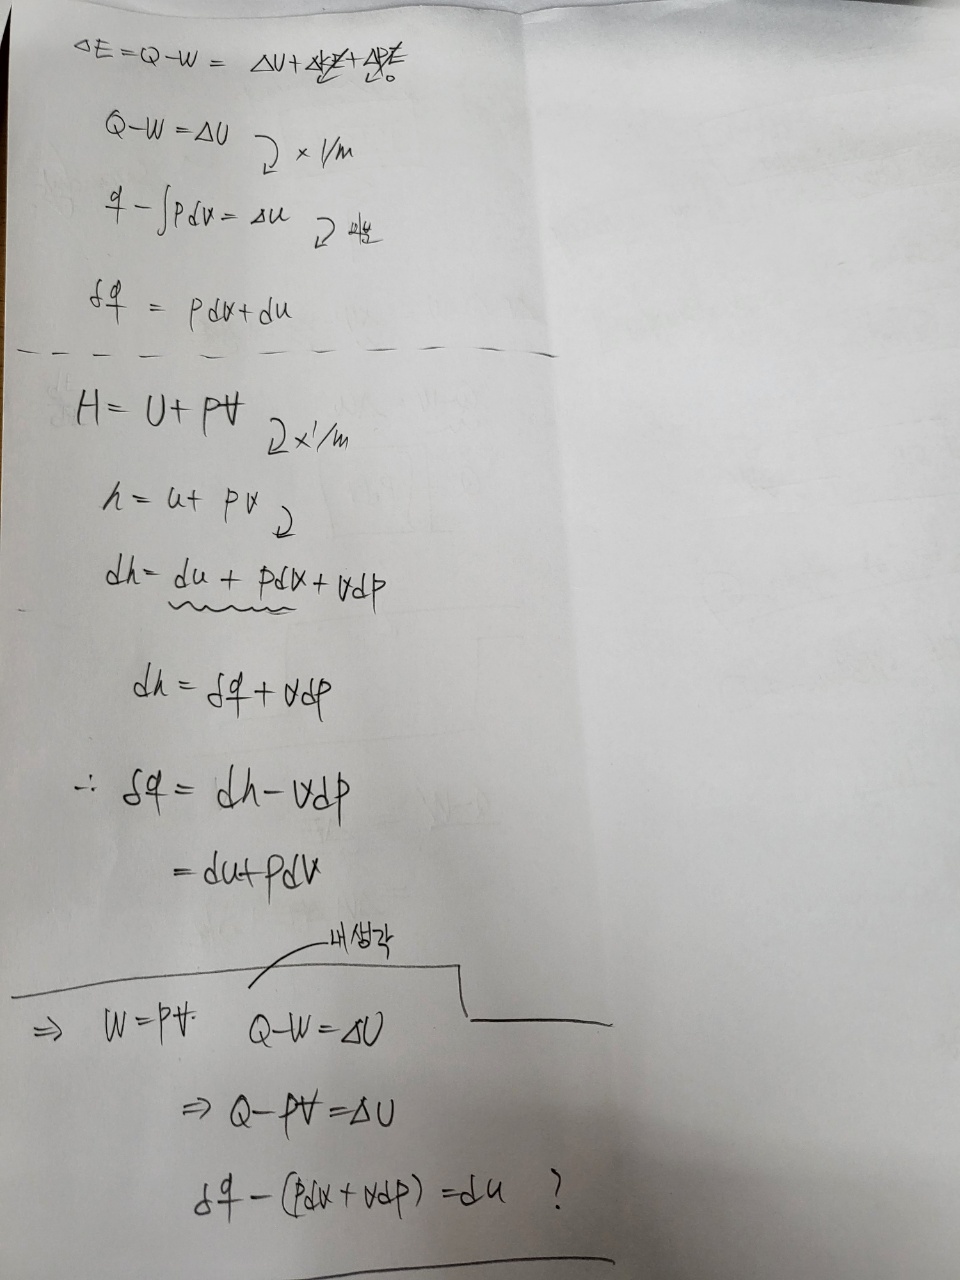 ΔE = Q-W = ΔU + ΔKE + ΔPE
Q-W = ΔU
× 1/m
q - ∫pdv = Δu
미분
δq = pdv + du
H = U + pV
× 1/m
h = u + pv
dh = du + pdv + vdp
dh = δq + vdp
∴ δq = dh - vdp
= du + pdv
내 생각
⇒ W = pV. Q-W = ΔU
⇒ Q - pV = ΔU
δq - (pdv + vdp) = du ?